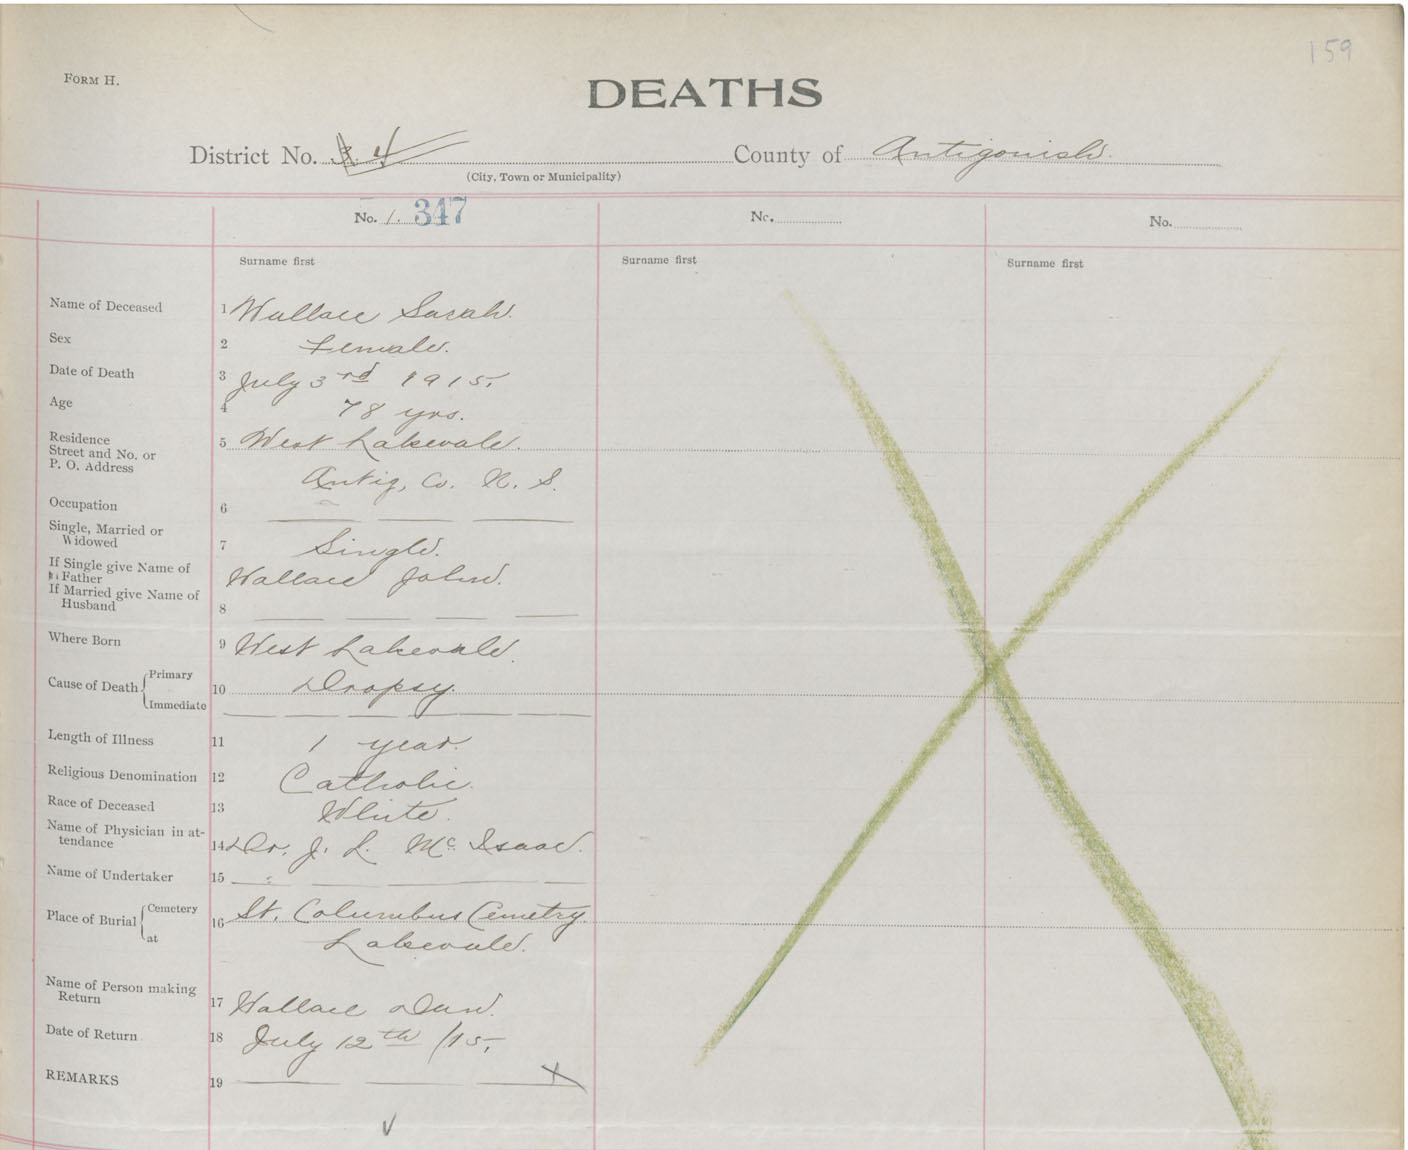 159
FORM H.
DEATHS
District No. 3 4 County of Antigonish.
(City, Town or Municipality)
No. 1. 347 No. No.
Surname first Surname first Surname first
Name of Deceased 1 Wallace Sarah.
Sex 2 Female.
Date of Death 3 July 3rd 1915.
Age 4 78 yrs.
Residence 5 West Lakevale.
Street and No. or
P. O. Address
Antig. Co. N. S.
Occupation 6
Single, Married or
Widowed 7 Single.
If Single give Name of
Father Wallace John.
If Married give Name of
Husband 8
Where Born 9 West Lakevale.
Cause of Death Primary 10 Dropsy.
Immediate
Length of Illness 11 1 year.
Religious Denomination 12 Catholic.
Race of Deceased 13 White.
Name of Physician in at-
tendance 14 Dr. J. L. McIsaac.
Name of Undertaker 15
Place of Burial Cemetery 16 St. Columbus Cemetry.
at Lakevale.
Name of Person making
Return 17 Wallace Dan.
Date of Return 18 July 12th /15.
REMARKS 19